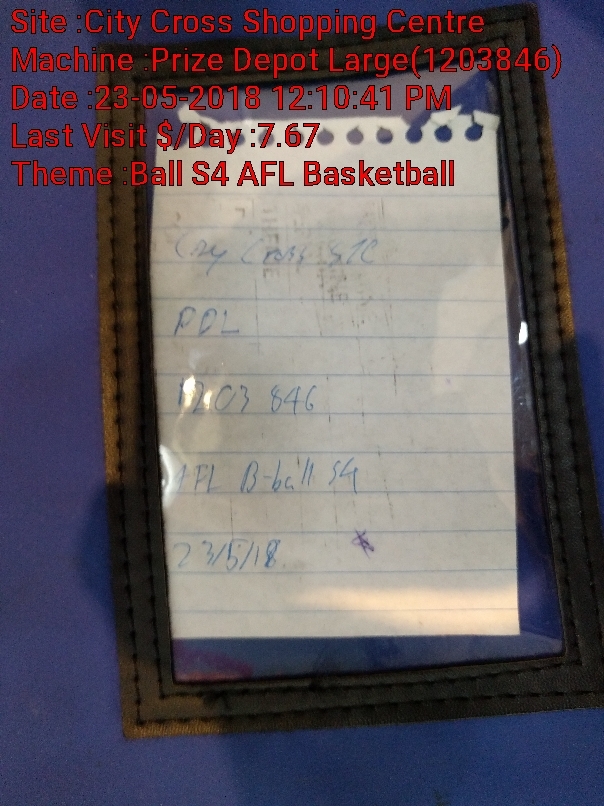 Site :City Cross Shopping Centre
Machine :Prize Depot Large(1203846)
Date :23-05-2018 12:10:41 PM
Last Visit $/Day :7.67
Theme :Ball S4 AFL Basketball
City Cross S/C
PDL
1203 846
AFL B-ball S4
23/5/18